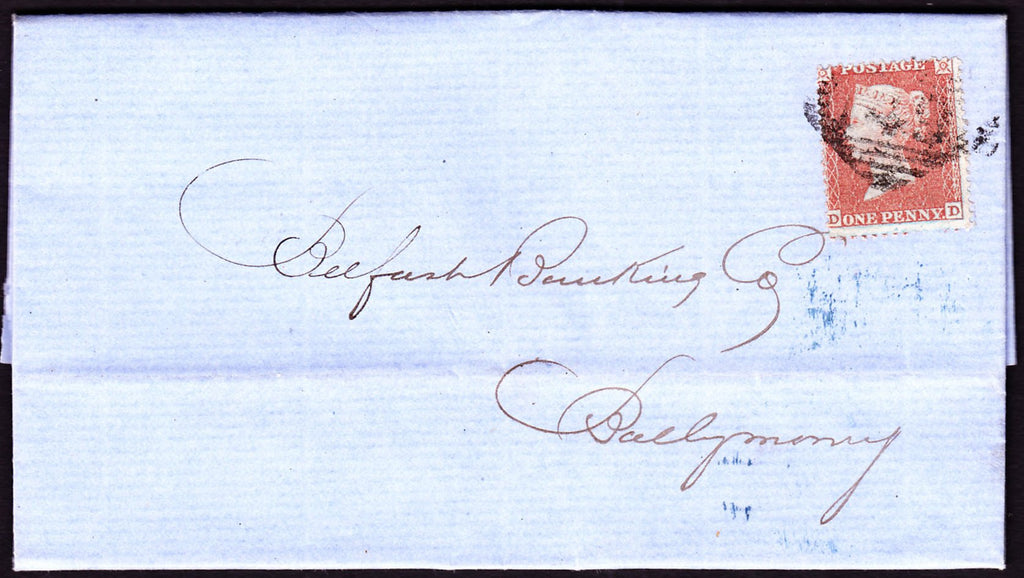 POSTAGE
D ONE PENNY. D
Belfast Banking Co
Ballymoney